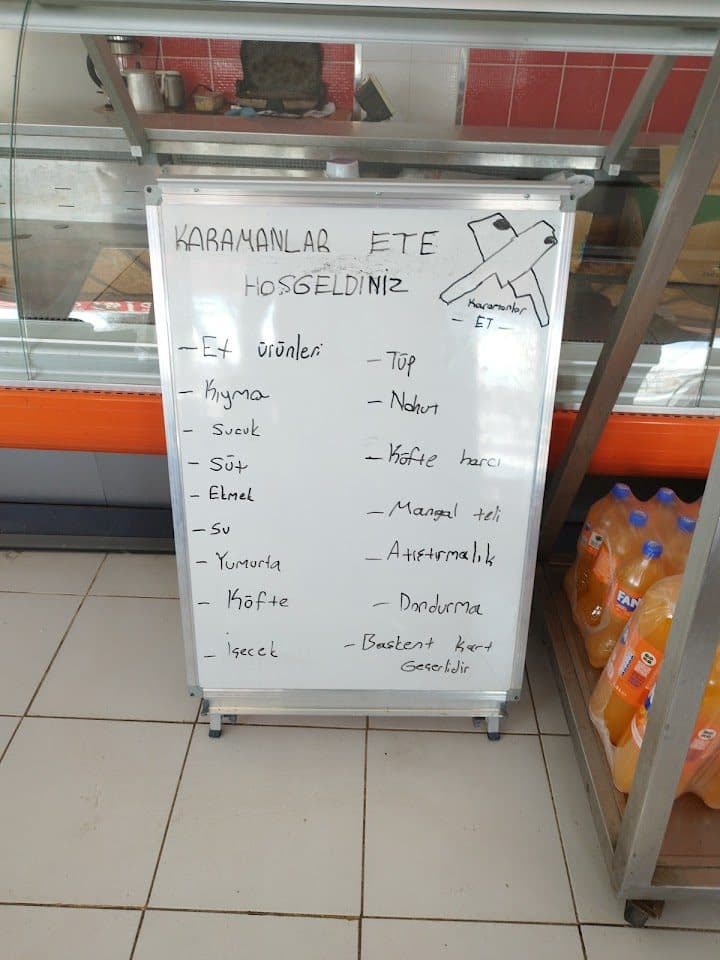 KARAMANLAR ETE
HOŞGELDİNİZ
Karamanlar
- ET -
- Et ürünleri
- Kıyma
- Sucuk
- Süt
- Ekmek
- Su
- Yumurta
- Köfte
- İçecek
- Tüp
- Nohut
- Köfte harcı
- Mangal teli
- Atıştırmalık
- Dondurma
- Başkent Kart
Geçerlidir
FAN